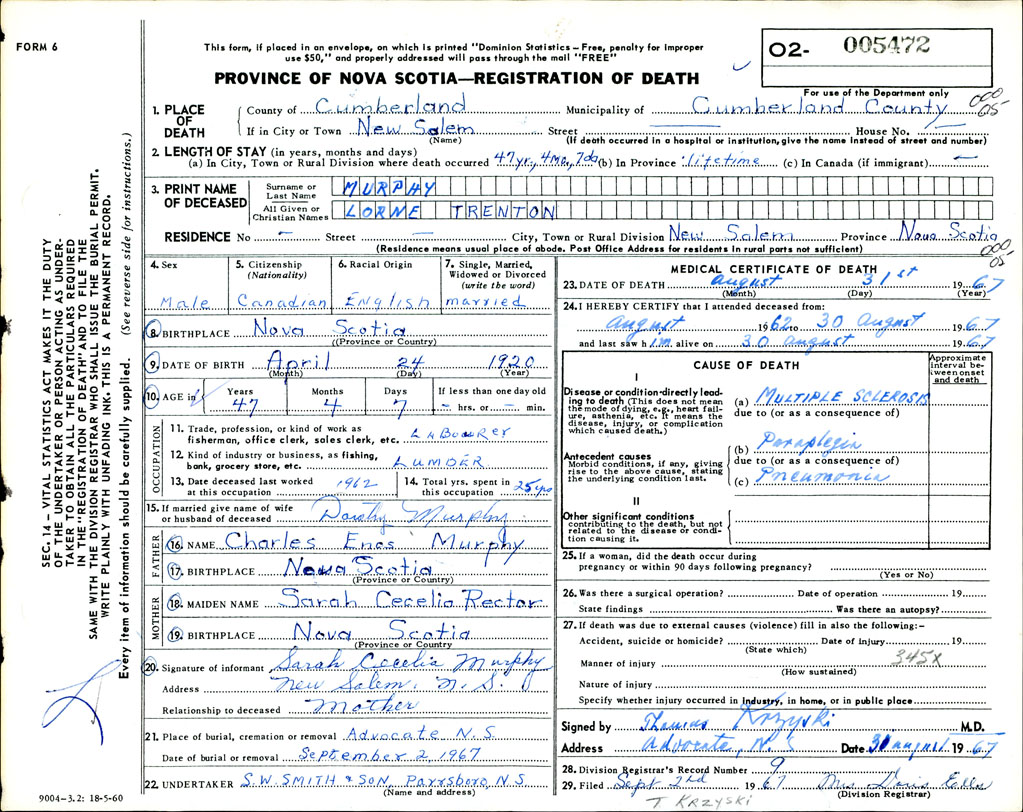 FORM 6
This form, if placed in an envelope, on which is printed "Dominion Statistics – Free, penalty for improper
use $50," and properly addressed will pass through the mail "FREE"
O2- 005472
For use of the Department only
PROVINCE OF NOVA SCOTIA—REGISTRATION OF DEATH
1. PLACE OF DEATH
County of Cumberland Municipality of Cumberland County
000
05
If in City or Town New Salem Street — House No. —
(Name) (If death occurred in a hospital or institution, give the name instead of street and number)
2. LENGTH OF STAY (in years, months and days)
(a) In City, Town or Rural Division where death occurred 47 yr, 4 mo, 7 da (b) In Province lifetime (c) In Canada (if immigrant) —
3. PRINT NAME OF DECEASED
Surname or Last Name MURPHY
All Given or Christian Names LORNE TRENTON
RESIDENCE No — Street — City, Town or Rural Division New Salem Province Nova Scotia
(Residence means usual place of abode. Post Office Address for residents in rural parts not sufficient)
000
05
4. Sex 5. Citizenship (Nationality) 6. Racial Origin 7. Single, Married, Widowed or Divorced (write the word)
Male Canadian English married
8. BIRTHPLACE Nova Scotia
(Province or Country)
9. DATE OF BIRTH April 24 1920
(Month) (Day) (Year)
10. AGE in Years Months Days If less than one day old
47 4 7 – hrs. or – min.
OCCUPATION
11. Trade, profession, or kind of work as
fisherman, office clerk, sales clerk, etc. LABOURER
12. Kind of industry or business, as fishing,
bank, grocery store, etc. LUMBER
13. Date deceased last worked at this occupation 1962 14. Total yrs. spent in this occupation 25 yrs
15. If married give name of wife
or husband of deceased Dorothy Murphy
FATHER
16. NAME Charles Enos Murphy
17. BIRTHPLACE Nova Scotia
(Province or Country)
MOTHER
18. MAIDEN NAME Sarah Cecelia Rector
19. BIRTHPLACE Nova Scotia
(Province or Country)
20. Signature of informant Sarah Cecelia Murphy
Address New Salem, N. S.
Relationship to deceased Mother
21. Place of burial, cremation or removal Advocate N. S.
Date of burial or removal September 2, 1967
22. UNDERTAKER S. W. SMITH & SON, Parrsboro, N.S.
(Name and address)
MEDICAL CERTIFICATE OF DEATH
23. DATE OF DEATH August 31st 1967
(Month) (Day) (Year)
24. I HEREBY CERTIFY that I attended deceased from:
August 1962 to 30 August 1967
and last saw him alive on 30 August 1967
CAUSE OF DEATH
Approximate interval between onset and death
I
Disease or condition directly leading to death (This does not mean
the mode of dying, e.g., heart failure, asthenia, etc. It means the
disease, injury, or complication
which caused death.)
(a) MULTIPLE SCLEROSIS
due to (or as a consequence of)
Antecedent causes
Morbid conditions, if any, giving
rise to the above cause, stating
the underlying condition last.
(b) Paraplegia
due to (or as a consequence of)
(c) Pneumonia
II
Other significant conditions
contributing to the death, but not
related to the disease or condition causing it.
25. If a woman, did the death occur during
pregnancy or within 90 days following pregnancy?
(Yes or No)
26. Was there a surgical operation? Date of operation 19
State findings Was there an autopsy?
27. If death was due to external causes (violence) fill in also the following:–
Accident, suicide or homicide? Date of injury 19
(State which)
345X
Manner of injury
(How sustained)
Nature of injury
Specify whether injury occurred in Industry, in home, or in public place
Signed by Thomas Krzyski M.D.
Address Advocate, N.S. Date 31 August 1967
28. Division Registrar's Record Number 9
29. Filed Sept 2nd 1967 Mrs Doris Ells
(Division Registrar)
T. KRZYSKI
9004-3.2: 18-5-60
SEC. 14 – VITAL STATISTICS ACT MAKES IT THE DUTY
OF THE UNDERTAKER OR PERSON ACTING AS UNDERTAKER TO OBTAIN ALL THE PARTICULARS REQUIRED
IN THE "REGISTRATION OF DEATH" AND TO FILE THE
SAME WITH THE DIVISION REGISTRAR WHO SHALL ISSUE THE BURIAL PERMIT.
WRITE PLAINLY WITH UNFADING INK. THIS IS A PERMANENT RECORD.
Every item of information should be carefully supplied. (See reverse side for instructions.)